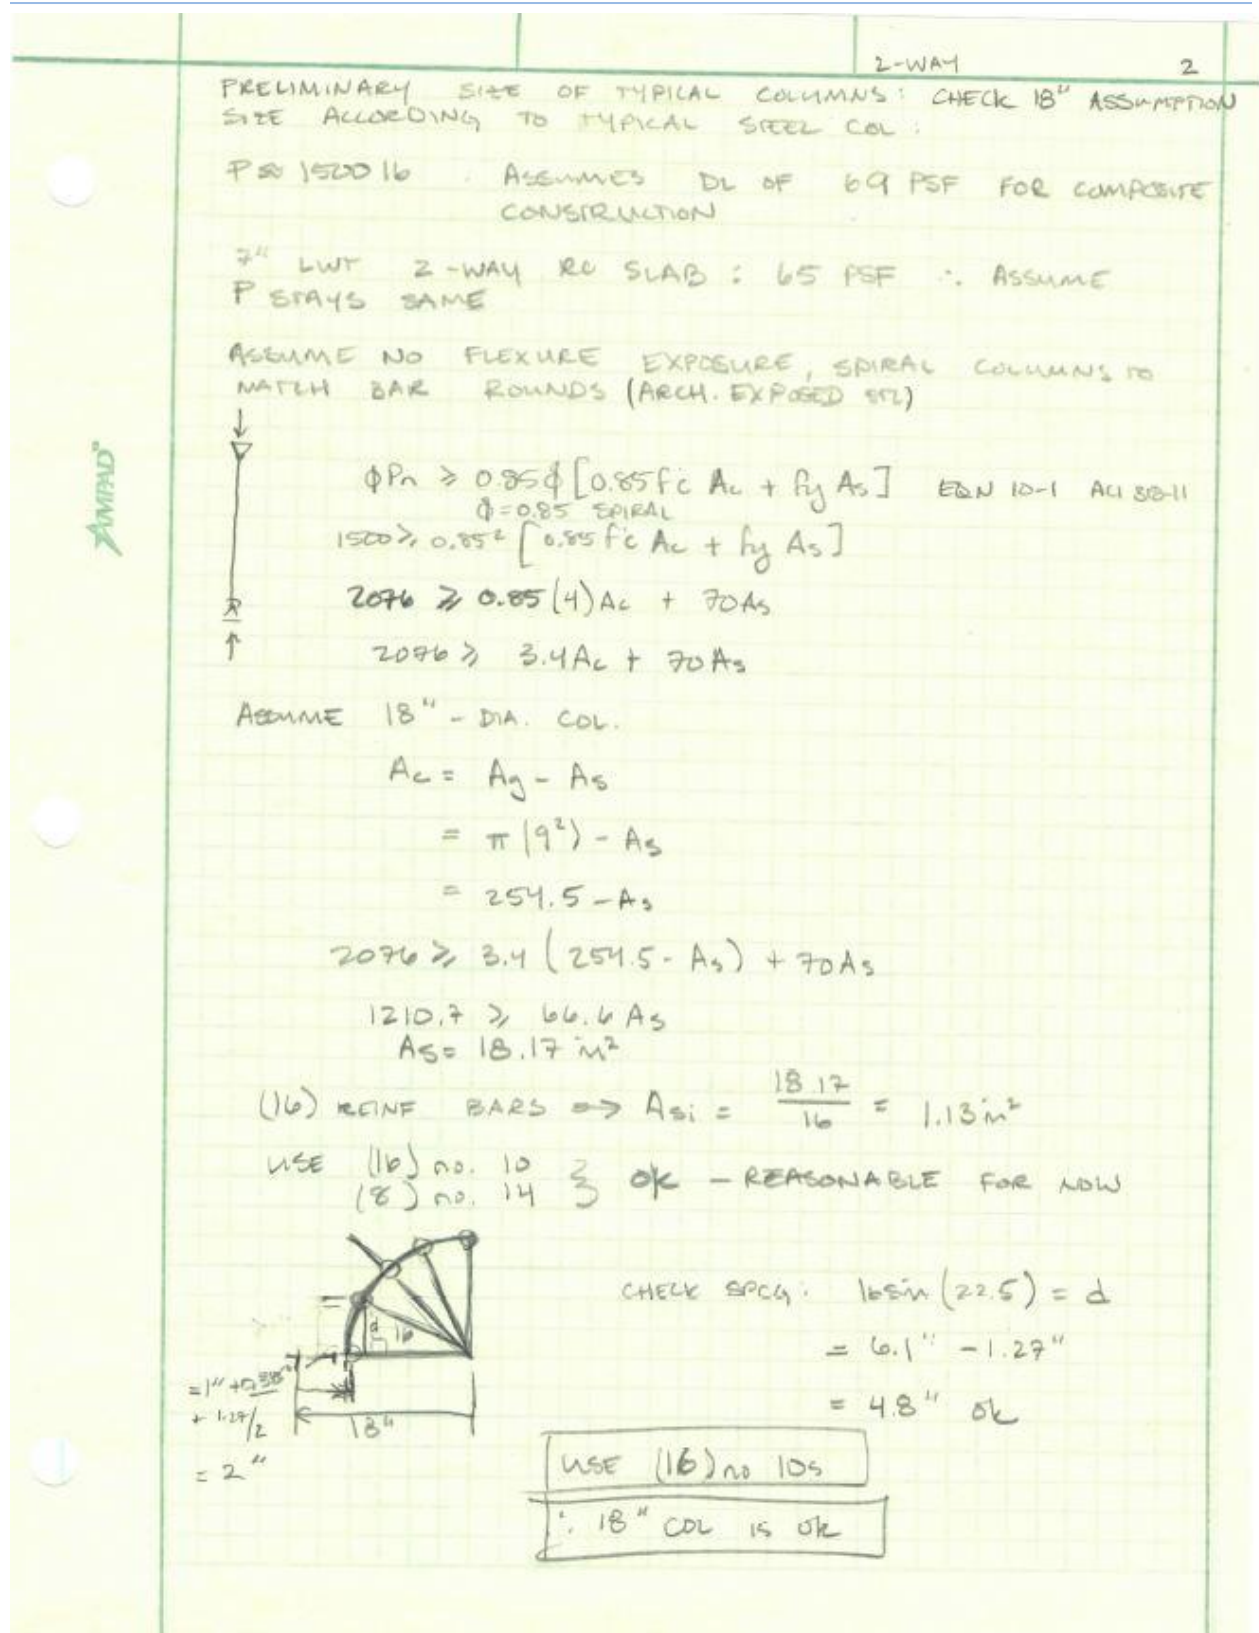 2-WAY 2
PRELIMINARY SIZE OF TYPICAL COLUMNS: CHECK 18" ASSUMPTION
SIZE ACCORDING TO TYPICAL STEEL COL:
P ≈ 1500 lb ASSUMES DL OF 69 PSF FOR COMPOSITE
CONSTRUCTION
7" LWT 2-WAY RC SLAB : 65 PSF ∴ ASSUME
P STAYS SAME
ASSUME NO FLEXURE EXPOSURE, SPIRAL COLUMNS TO
MATCH BAR ROUNDS (ARCH. EXPOSED STL)
AMPAD
ϕPn ≥ 0.85ϕ [0.85f'c Ac + fy As] EQN 10-1 ACI 318-11
ϕ=0.85 SPIRAL
1500 ≥ 0.85² [0.85 f'c Ac + fy As]
2076 ≥ 0.85(4)Ac + 70As
2076 ≥ 3.4Ac + 70As
ASSUME 18" - DIA. COL.
Ac = Ag - As
= π(9²) - As
= 254.5 - As
2076 ≥ 3.4 (254.5 - As) + 70As
1210.7 ≥ 66.6 As
As = 18.17 in²
(16) REINF BARS => Asi = 18.17/16 = 1.13 in²
USE (16) no. 10 } OK - REASONABLE FOR NOW
(8) no. 14
CHECK SPCG: 16sin(22.5) = d
d 16
= 6.1" - 1.27"
=1" + 0.38"
+ 1.27/2
18"
= 4.8" ok
= 2"
USE (16) no 10s
∴ 18" COL IS OK